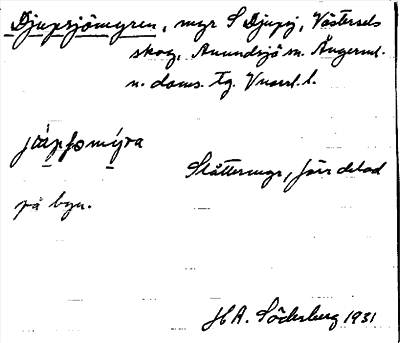 Djupsjömyren, myr S Djupsj, Västersels
skog, Anundsjö sn. Ångerml.
n. doms. Tg. Vnorrl. l.
jɯ́pʃomýra
Slåttermyr, förr delad
på byn.
H A. Söderberg 1931